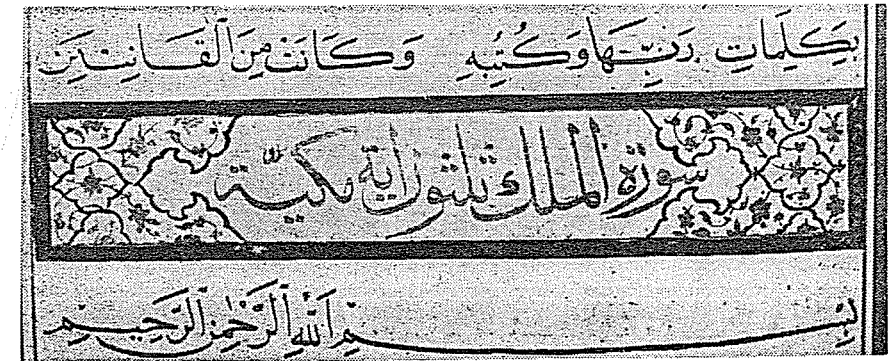 بِكَلِمَاتِ رَبِّهَا وَكُتُبِهِ وَكَانَتْ مِنَ ٱلْقَانِتِينَ
سورة الملك ثلثون اية مكية
بِسْمِ ٱللَّهِ ٱلرَّحْمٰنِ ٱلرَّحِيمِ